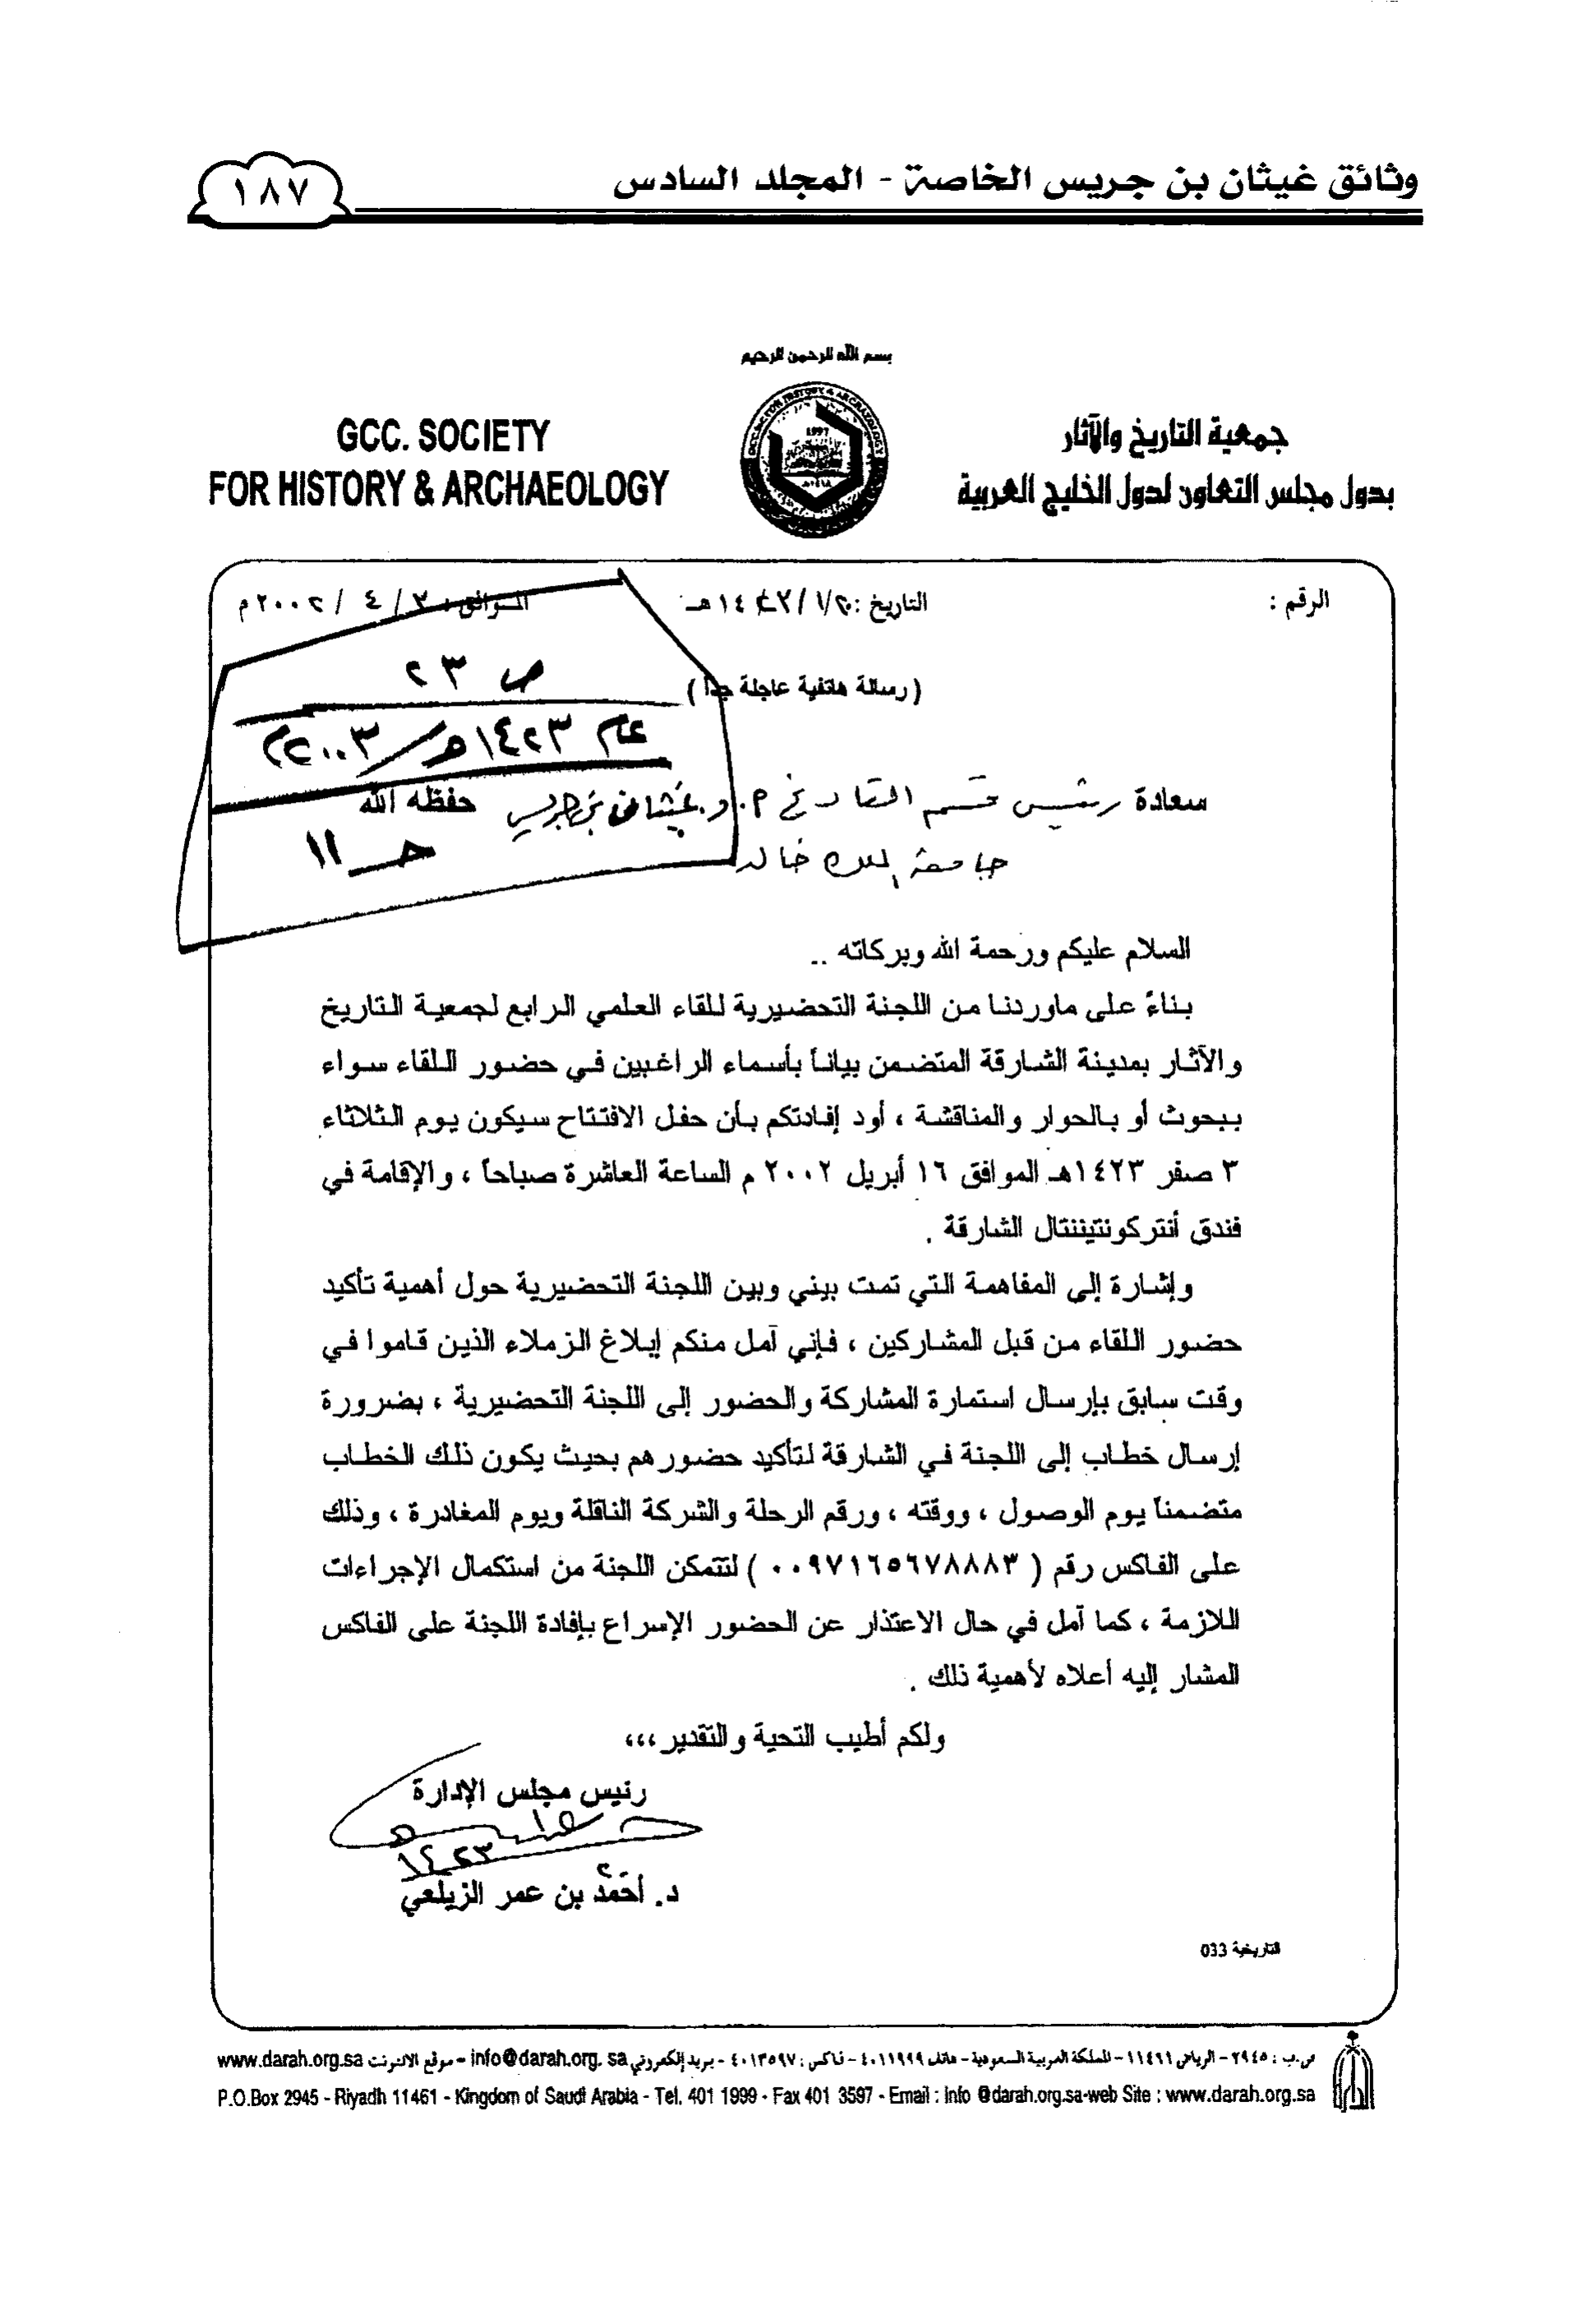 وثائق غيثان بن جريس الخاصة - المجلد السادس
١٨٧
بسم الله الرحمن الرحيم
جمعية التاريخ والآثار
بدول مجلس التعاون لدول الخليج العربية
GCC. SOCIETY
FOR HISTORY & ARCHAEOLOGY
1997
الرقم :
التاريخ : ٢٠/١/١٤٢٣هـ
الموافق : ٣/٤/٢٠٠٢م
(رسالة هاتفية عاجلة جداً)
ص ٢٣
عام ١٤٢٣هـ/٢٠٠٣م
حـ ١١
سعادة رئيس قسم التاريخ م. د. غيثان بن جريس حفظه الله
جامعة الملك خالد
السلام عليكم ورحمة الله وبركاته ..
بناءً على ماوردنا من اللجنة التحضيرية للقاء العلمي الرابع لجمعية التاريخ
والآثار بمدينة الشارقة المتضمن بياناً بأسماء الراغبين في حضور اللقاء سواء
ببحوث أو بالحوار والمناقشة ، أود إفادتكم بأن حفل الافتتاح سيكون يوم الثلاثاء
٣ صفر ١٤٢٣هـ الموافق ١٦ أبريل ٢٠٠٢ م الساعة العاشرة صباحاً ، والإقامة في
فندق أنتركونتيننتال الشارقة .
وإشارة إلى المفاهمة التي تمت بيني وبين اللجنة التحضيرية حول أهمية تأكيد
حضور اللقاء من قبل المشاركين ، فإني آمل منكم إبلاغ الزملاء الذين قاموا في
وقت سابق بإرسال استمارة المشاركة والحضور إلى اللجنة التحضيرية ، بضرورة
إرسال خطاب إلى اللجنة في الشارقة لتأكيد حضورهم بحيث يكون ذلك الخطاب
متضمناً يوم الوصول ، ووقته ، ورقم الرحلة والشركة الناقلة ويوم المغادرة ، وذلك
على الفاكس رقم ( ٠٠٩٧١٦٥٦٧٨٨٨٣ ) لتتمكن اللجنة من استكمال الإجراءات
اللازمة ، كما آمل في حال الاعتذار عن الحضور الإسراع بإفادة اللجنة على الفاكس
المشار إليه أعلاه لأهمية ذلك .
ولكم أطيب التحية والتقدير ،،،
رئيس مجلس الإدارة
١٤٢٣
د. أحمد بن عمر الزيلعي
التاريخية 033
ص.ب : ٢٩٤٥ - الرياض ١١٤٦١ - المملكة العربية السعودية - هاتف ٤٠١١٩٩٩ - فاكس : ٤٠١٣٥٩٧ - بريد إلكتروني info@darah.org. sa - موقع الانترنت www.darah.org.sa
P.O.Box 2945 - Riyadh 11461 - Kingdom of Saudi Arabia - Tel. 401 1999 - Fax 401 3597 - Email : Info @darah.org.sa-web Site : www.darah.org.sa